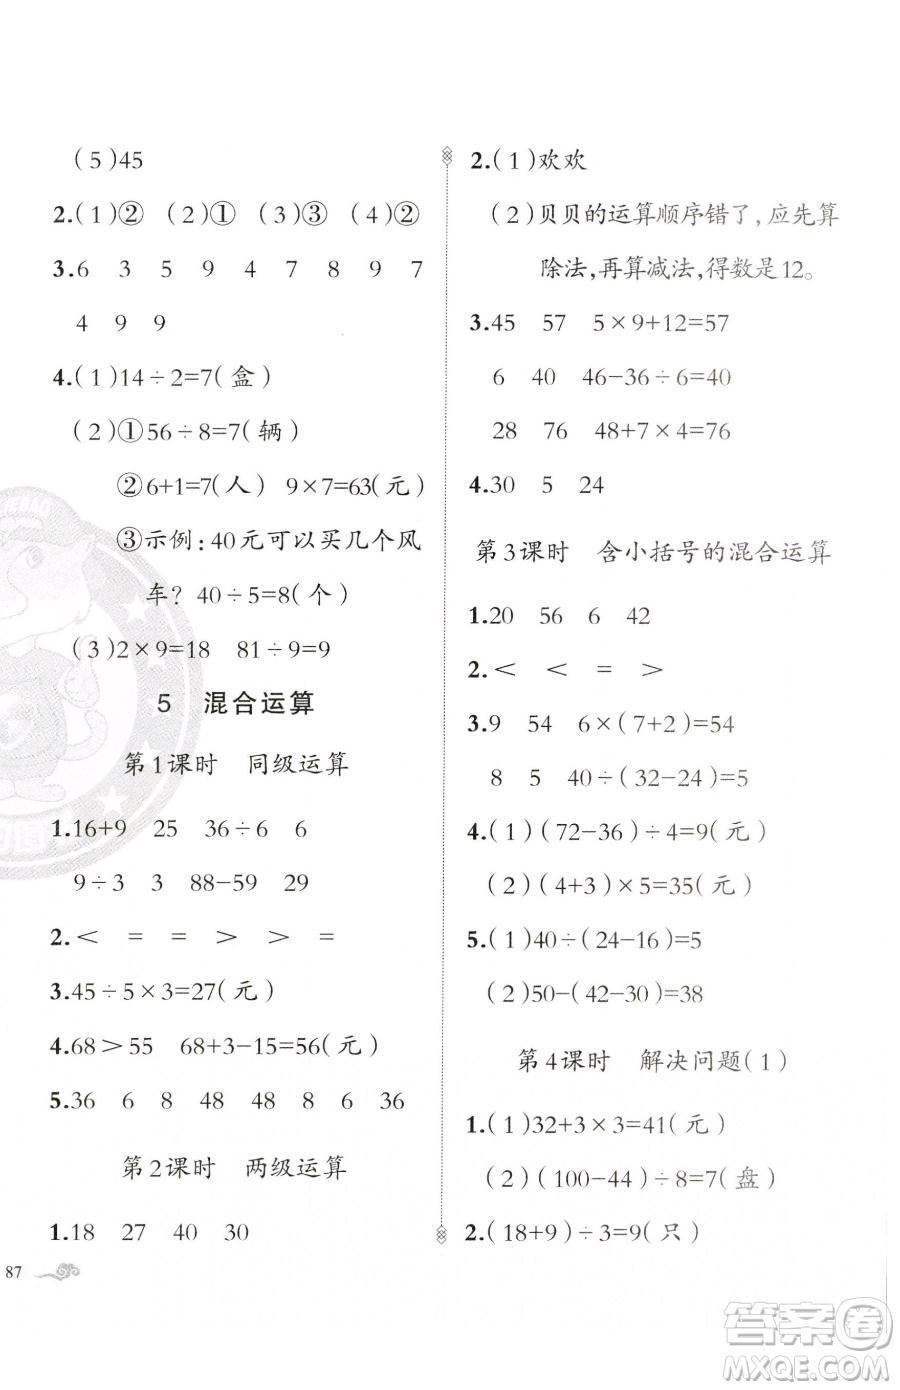 (5)45
2.(1)② (2)① (3)③ (4)②
3.6 3 5 9 4 7 8 9 7
4 9 9
4.(1)14÷2=7(盒)
(2)①56÷8=7(辆)
②6+1=7(人) 9×7=63(元)
③示例:40元可以买几个风
车? 40÷5=8(个)
(3)2×9=18 81÷9=9
5 混合运算
第1课时 同级运算
1.16+9 25 36÷6 6
9÷3 3 88-59 29
2.< = = > > =
3.45÷5×3=27(元)
4.68>55 68+3-15=56(元)
5.36 6 8 48 48 8 6 36
第2课时 两级运算
1.18 27 40 30
87
2.(1)欢欢
(2)贝贝的运算顺序错了,应先算
除法,再算减法,得数是12。
3.45 57 5×9+12=57
6 40 46-36÷6=40
28 76 48+7×4=76
4.30 5 24
第3课时 含小括号的混合运算
1.20 56 6 42
2.< < = >
3.9 54 6×(7+2)=54
8 5 40÷(32-24)=5
4.(1)(72-36)÷4=9(元)
(2)(4+3)×5=35(元)
5.(1)40÷(24-16)=5
(2)50-(42-30)=38
第4课时 解决问题(1)
1.(1)32+3×3=41(元)
(2)(100-44)÷8=7(盘)
2.(18+9)÷3=9(只)
答案圈
MXQE.COM